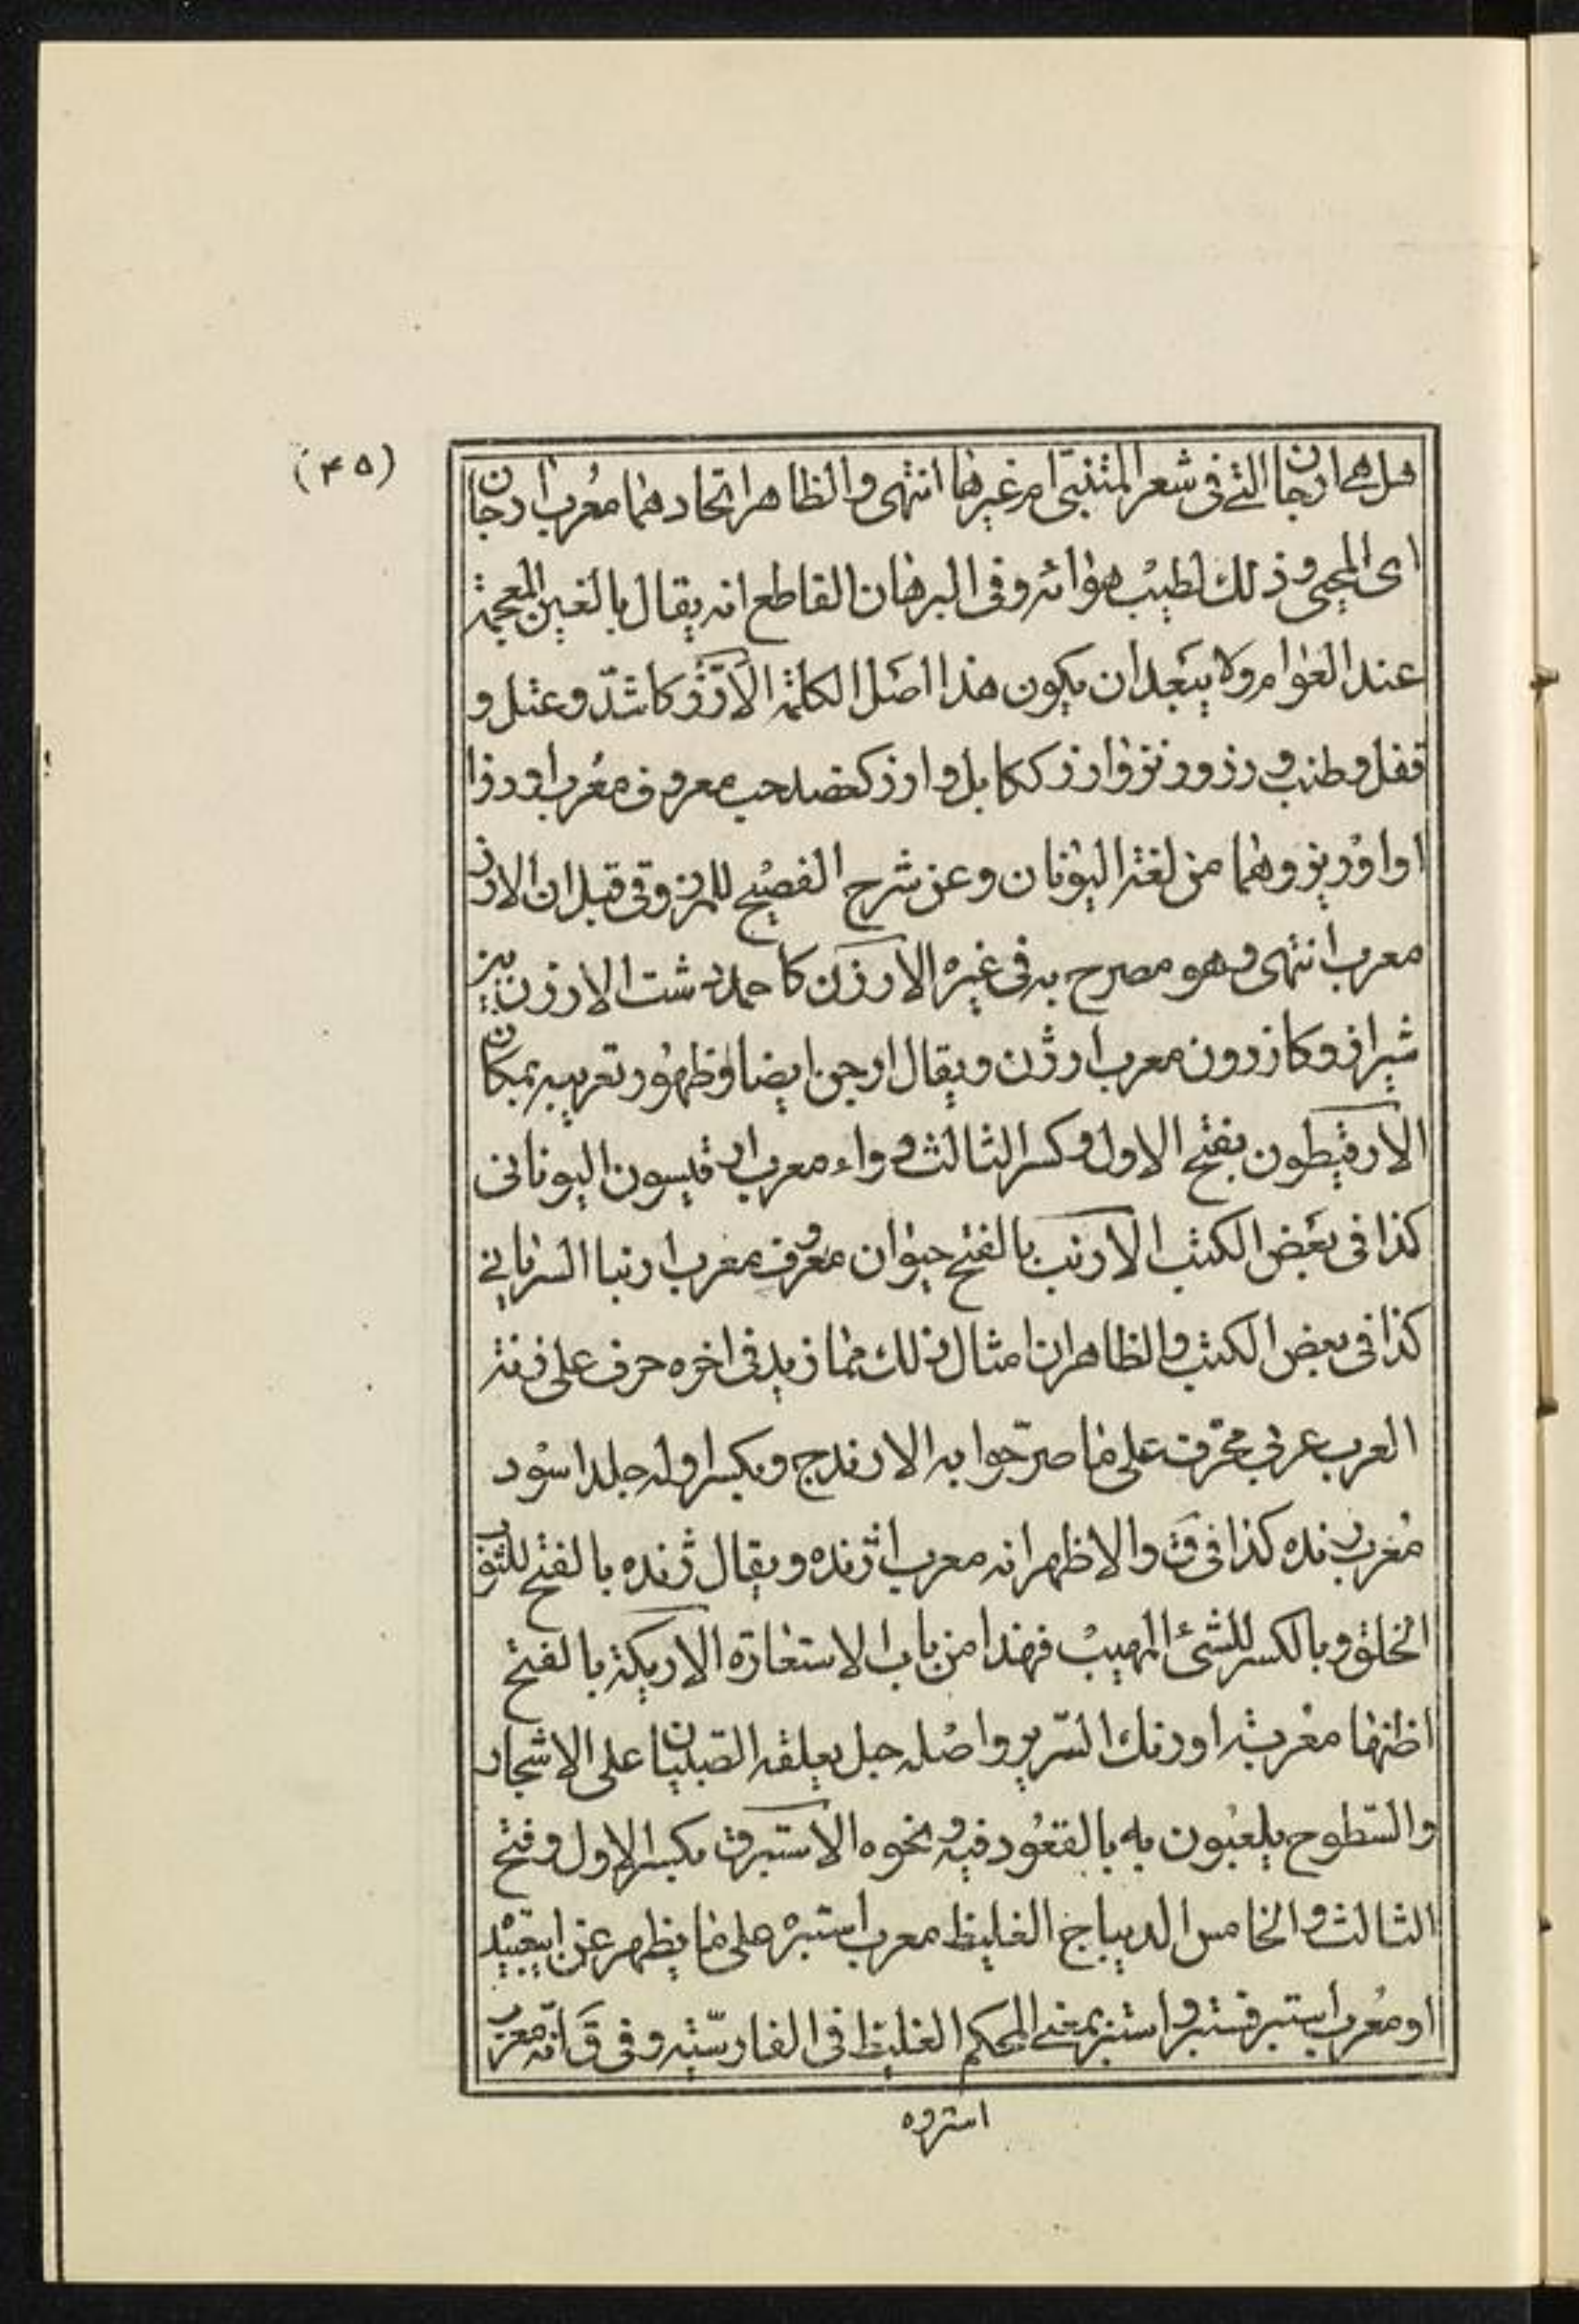 (۴۵)
هل هی ارجان التی فی شعر المتنبّی ام غیرها انتهی والظاهر اتحادهما معُرب ارجان
ای المحیی وذلك لطیب هوائه وفی البرهان القاطع انه یقال بالغین المعجمة
عند العوام ولا یبعد ان یکون هذا اصل الکلمة الأرُزّ وکاشدّ وعتل و
قفل وطنب ورز ورنز وارز ککابل وارز کعضد حب معروف معُرب اورزا
او اوُریز وهما من لغة الیونان وعن شرح الفصیح للمرزوقی قیل ان الارز
معرب انتهی وهو مصرح به فی غیره الأرزن کاحمد دشت الارزن بین
شیراز وکازرون معرب ارژن ویقال ارجن ایضا وظهور تعریبه بمکان
الارقیطون بفتح الاول وکسر الثالث دواء معرب ارقیسون الیونانی
کذا فی بعض الکتب الارنب بالفتح حیوان معروف معرب ارنبا السریانی
کذا فی بعض الکتب والظاهر ان امثال ذلك مما زید فی اخره حرف علی زنة
العرب عربی محرّف علی ما صرّحوا به الارندج ویکسر اوله جلد اسود
مُعرب رنده کذا فی ق والاظهر انه معرب اژنده ویقال ژنده بالفتح للثوب
الخلق وبالکسر للشیٔ المهیب فهذا من باب الاستعارة الاریکة بالفتح
اظنها معُربة اورنك السّریر واصله حبل یعلقه الصبیان علی الاشجار
والسّطوح یلعبون به بالقعود فیه ونحوه الاستبرق بکسر الاول وفتح
الثالث والخامس الدیباج الغلیظ معرب استبره علی ما یظهر عن ابیعبید
او معُرب استبر فستبر واستبر بمعنی المحکم الغلیظ فی الفارسّیة وفی ق انّه معرب
استروه